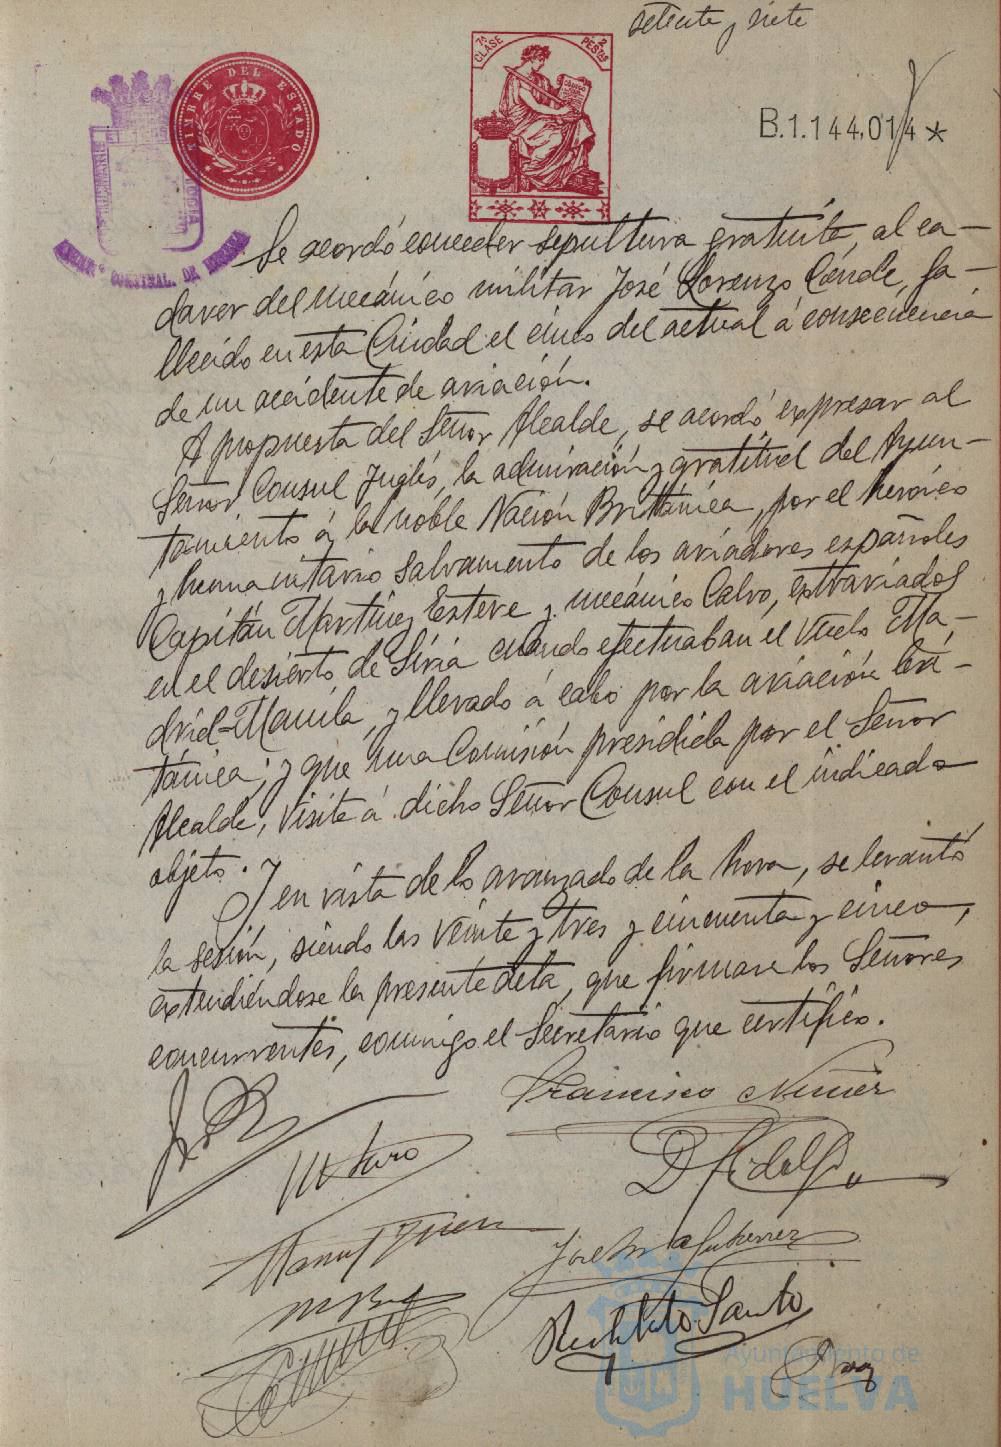 setenta y siete
7ª CLASE
2 PESTAS
TIMBRE DEL ESTADO
B.1.144.014 *
Se acordó conceder sepultura gratuita, al ca-
daver del mecánico militar José Lorenzo Cónde, fa-
llecido en esta Ciudad el cinco del actual á consecuencia
de un accidente de aviación.
A propuesta del Señor Alcalde, se acordó expresar al
Señor Consul Inglés, la admiración y gratitud del Ayun-
tamiento á la noble Nación Brittánica, por el heróico
y humanitario salvamento de los aviadores españoles
Capitán Martínez Esteve y mecánico Calvo, extraviados
en el desierto de Siria cuando efectuaban el vuelo Ma-
drid-Manila, y llevado á cabo por la aviación bri-
tánica; y que una Comisión presidida por el Señor
Alcalde, visite á dicho Señor Consul con el indicado
objeto.
Y en vista de lo avanzado de la hora, se levantó
la sesión, siendo las veinte y tres y cincuenta y cinco,
extendiéndose la presente acta, que firman los Señores
concurrentes, conmigo el Secretario que certifico.
Francisco
D. Hidalgo
José Mª Gutierrez
Santo
Ayuntamiento de
HUELVA